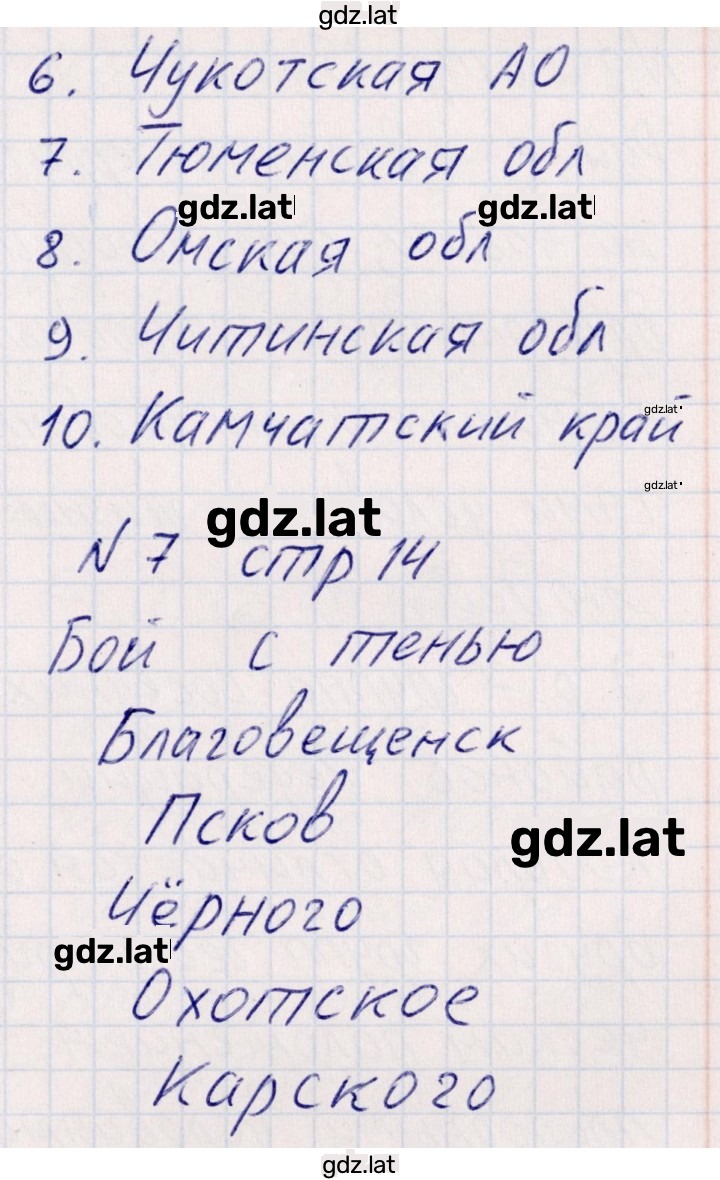 gdz.lat
6. Чукотская АО
7. Тюменская обл
gdz.lat gdz.lat
8. Омская обл
9. Читинская обл
gdz.lat
10. Камчатский край
gdz.lat
gdz.lat
N 7 стр 14
Бой с тенью
Благовещенск
Псков
gdz.lat
Чёрного
gdz.lat
Охотское
Карского
gdz.lat